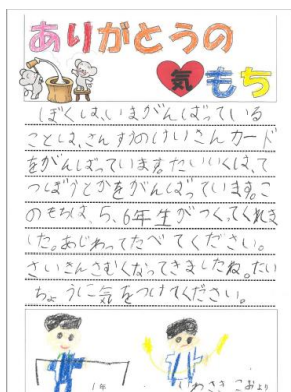 ありがとうの
気もち
ぼくは、いまがんばっている
ことは、さんすうのけいさんカード
をがんばっています。たいいくは、て
つぼうとかをがんばっています。こ
のもちは、5、6年生がつくってくれま
した。あじわってたべてください。
さいきんさむくなってきましたね。たい
ちょうに気をつけてください。
1年 いわさき こおより